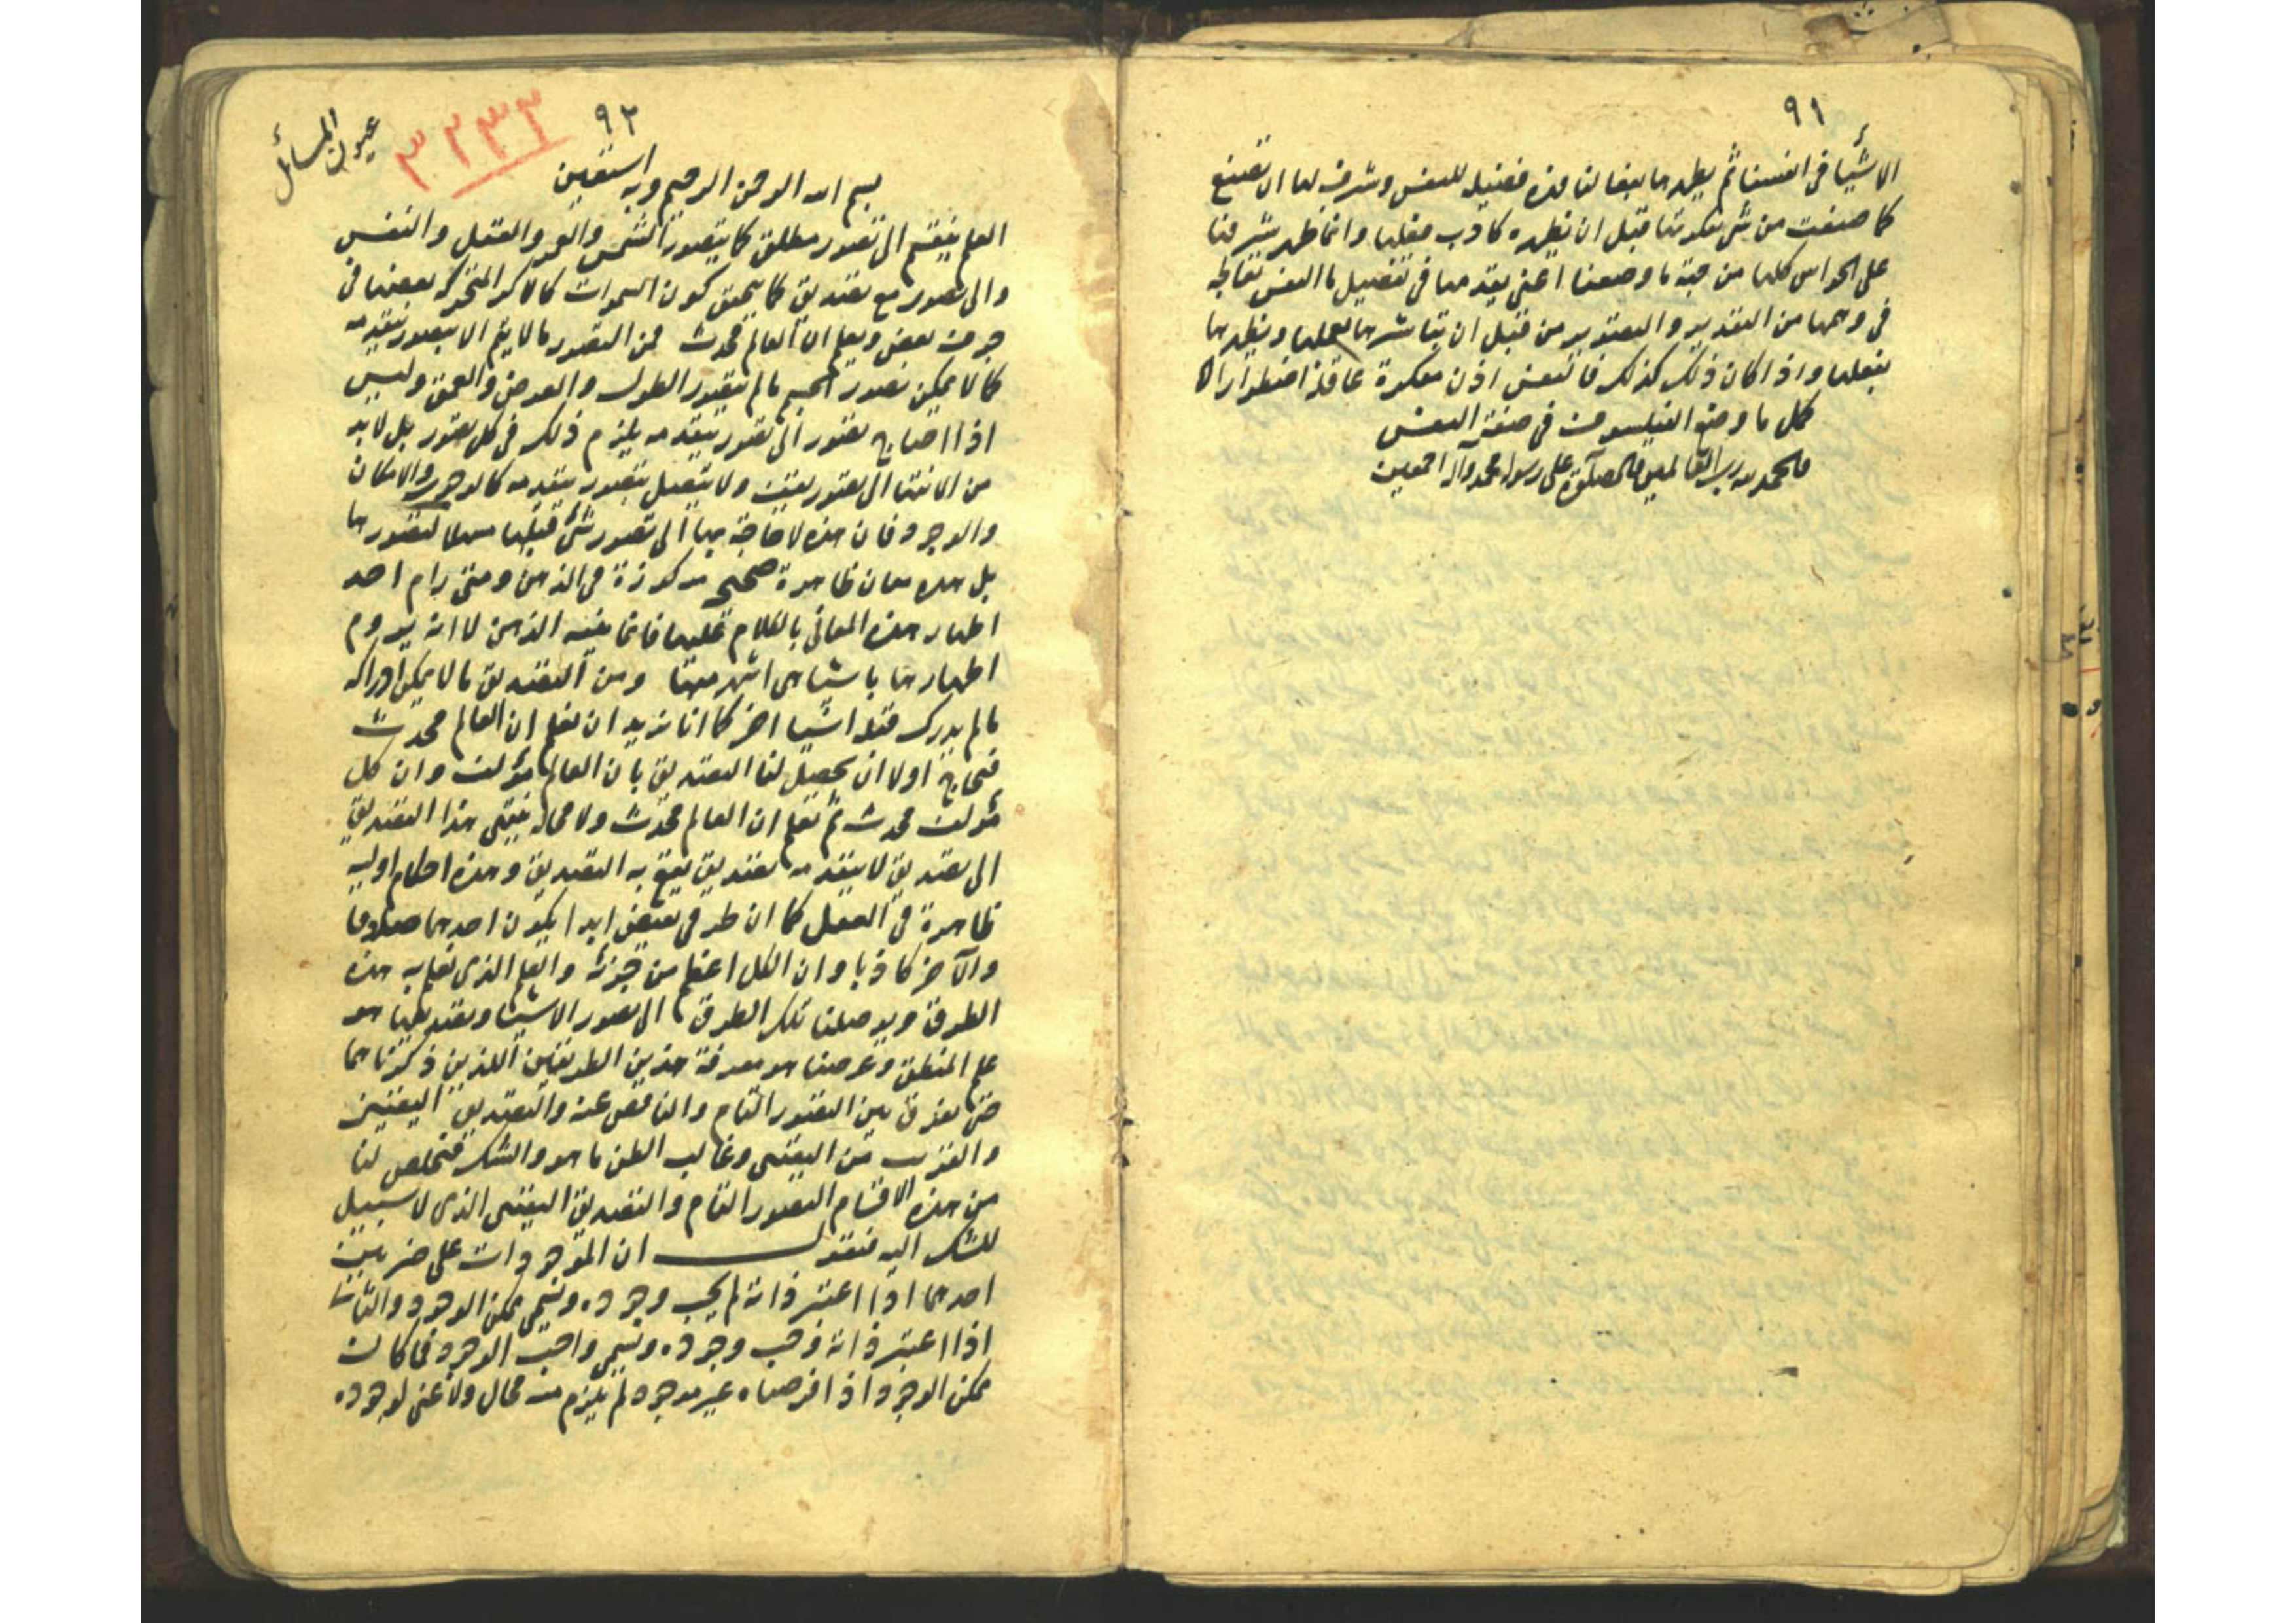 ٩١
الاشيا فى انفسنا ثم يظهرها بفعالنا فهذه فضيلة للنفس وشرف لها ان تصنع
كما صنعت من شى بفكرتنا قبل ان نظهره كادب فعلها وانما ظهر شرفنا
على الحواس كلها من جهة ما وصفنا اعنى يقدمها فى تفصيل ما النفس
فى وهمها من التقدير والتصوير من قبل ان تباشرها بعملها ويظهرها
بفعلها واذا كان ذلك كذلك فالنفس اذن مفكرة عاقلة اضطرارا
كمل ما وضع الفيلسوف فى صفة النفس
والحمد لله رب العالمين والصلوة على رسوله محمد وآله اجمعين
عيون المسائل
٣٢٣٣
٩٢
بسم الله الرحمن الرحيم وبه استعين
العلم ينقسم الى تصور مطلق كما يتصور الشمس والقمر والعقل والنفس
والى تصور مع تصديق كما يتحقق كون السموات كالاكر المتحركة بعضها فى
جوف بعض ويعلم ان العالم محدث فمن التصور ما لا يتم الا بتصور يتقدمه
كما لا يمكن تصور الجسم ما لم يتصور الطول والعرض والعمق وليس
اذا احتاج تصور الى تصور يتقدمه يلزم ذلك فى كل تصور بل لا بد
من الانتها الى تصور يقف ولا يتصل بتصور يتقدمه كالوجوب والامكان
والوجود فان هذه لا حاجة بها الى تصور شئ قبلها لتصورها
بل هذه معان ظاهرة صحيحة مركوزة فى الذهن ومتى رام احد
اظهار هذه المعانى بالكلام عليها فانما ينبه الذهن لا انه يروم
اظهارها باشيا هى اشهر منها ومن التصديق ما لا يمكن ادراكه
ما لم يدرك قبله اشيا اخر كما انا نريد ان نعلم ان العالم محدث
فنحتاج اولا ان يحصل لنا التصديق بان العالم مؤلف وان كل
مؤلف محدث ثم نعلم ان العالم محدث ولا محالة ينتهى هذا التصديق
الى تصديق لا يتقدمه تصديق يقع به التصديق وهذه احكام اولية
ظاهرة فى العقل كما ان طرفى نقيض ابدا يكون احدهما صادقا
والآخر كاذبا وان الكل اعظم من جزئه والعلم الذى نعلم به هذه
الطرق ويوصلنا تلك الطرق الى تصور الاشيا وتصديقها هو
علم المنطق وغرضنا هو معرفة هذين الطريقين اللذين ذكرناهما
حتى نفرق بين التصور التام والناقص عنه والتصديق اليقينى
والقرب من اليقين وغالب الظن ما هو والشك فنخلص لنا
من هذه الاقسام التصور التام والتصديق اليقينى الذى لا سبيل
للشك اليه فنقول ان الموجودات على ضربين
احدهما اذا اعتبر ذاته لم يجب وجوده ويسمى ممكن الوجود والثانى
اذا اعتبر ذاته وجب وجوده ويسمى واجب الوجود فما كان
ممكن الوجود اذا فرضناه غير موجود لم يلزم منه محال ولا غنى لوجوده